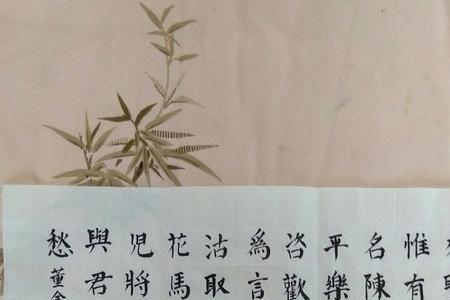 惟有
名陳
平樂
咨歡
爲言
沽取
花馬
兒將
與君
愁 董